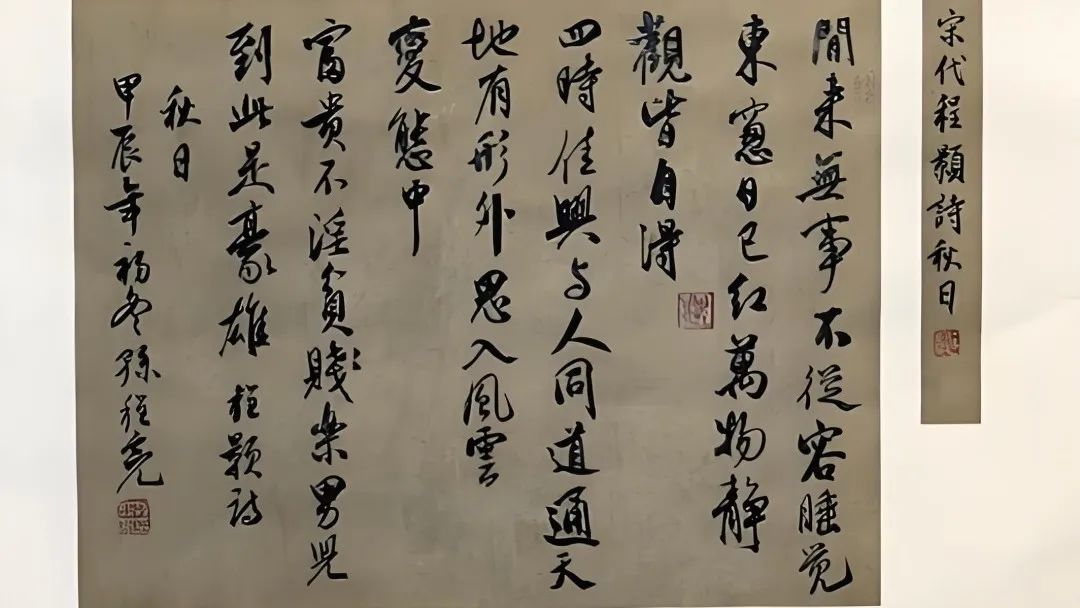 宋代程顥詩秋日
閒来無事不從容睡觉
東窻日已红萬物静
觀皆自得
四時佳興与人同道通天
地有形外思入風雲
變態中
富贵不淫貧賤楽男児
到此是豪雄 程颢诗
秋日
甲辰年初冬孫程亮